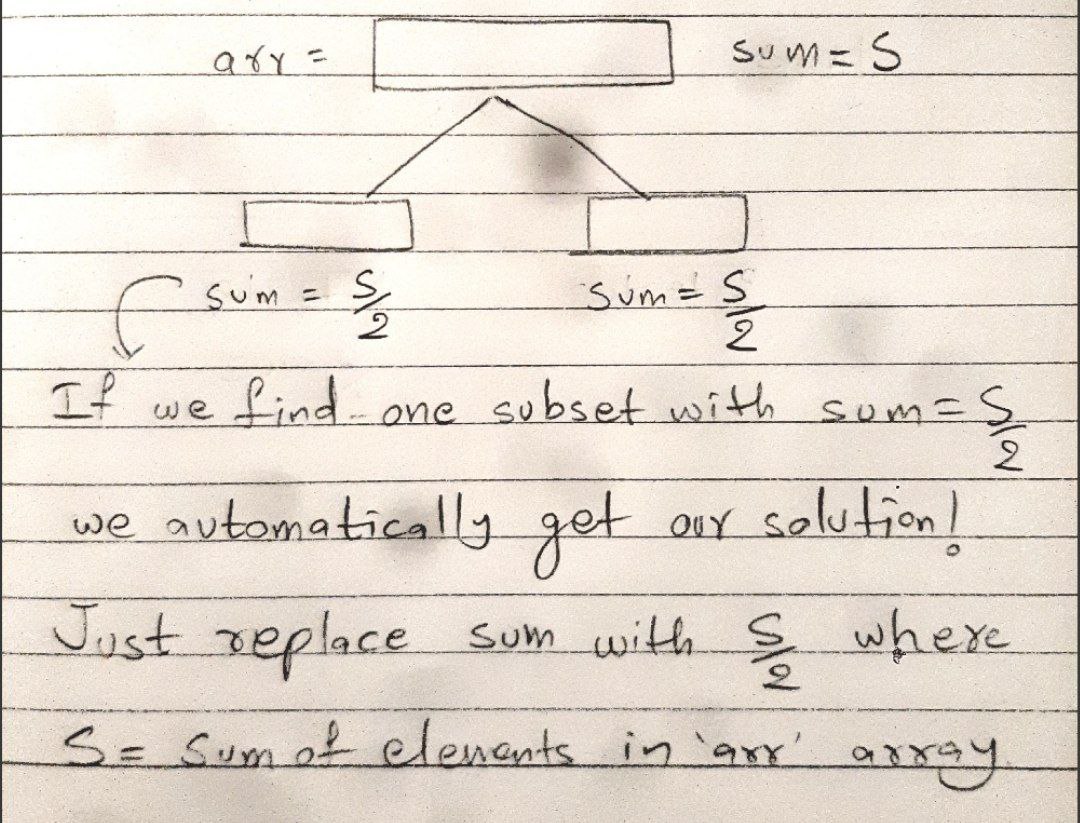 arr = sum = S
sum = S/2 sum = S/2
If we find one subset with sum = S/2
we automatically get our solution!
Just replace sum with S/2 where
S = Sum of elements in 'arr' array